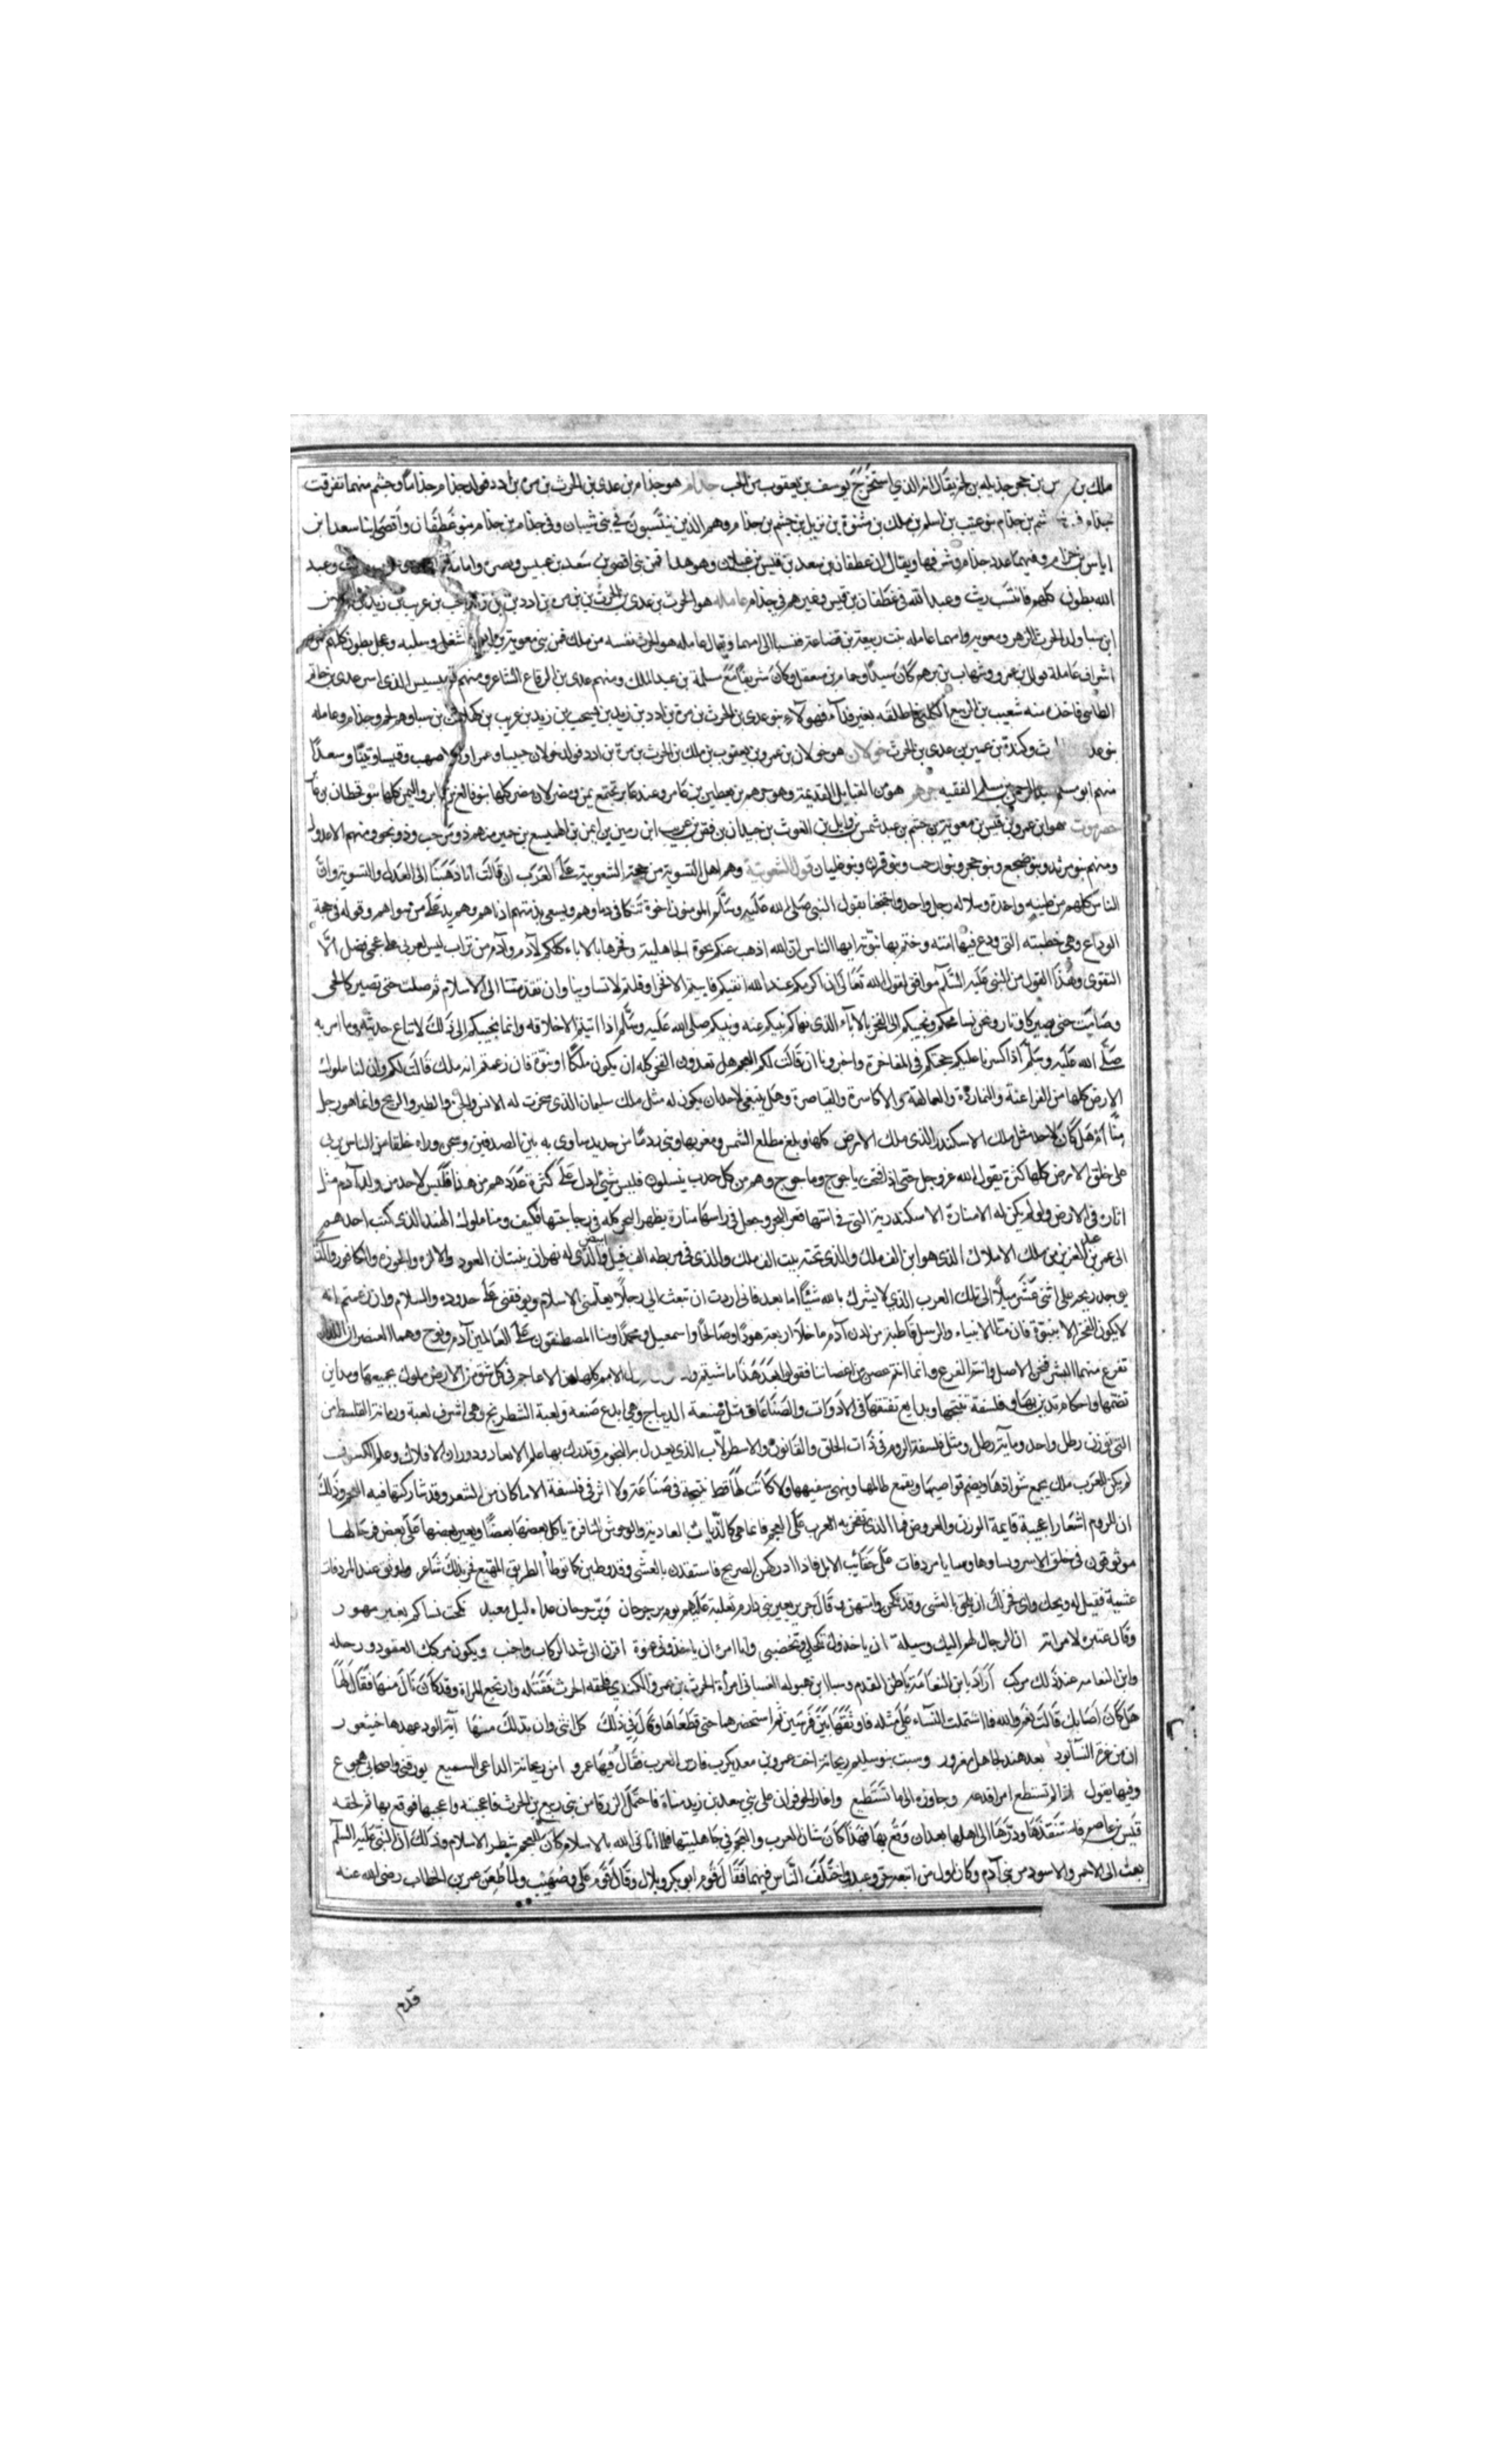 ملك بن بن حجر جذيله بن لخم يقال انه الذي استخرج يوسف بن يعقوب من الجب جذام هو جذام بن عدي بن الحرث بن مرة بن ادد فولد جذام حذاما وجشم منهما تفرقت
جذام جشم بن جذام بنو عتيب بن اسلم بن ملك بن شنوة بن نزيل بن جشم بن جذام وهم الذين ينتسبون في بني شيبان وفي جذام بن جذام بنو غطفان وأفصى ابنا سعد ابن
اياس بن حرام وفيهما عدد جذام وشرفها ويقال ان غطفان بن سعد بن قيس بن عيلان وهو هذا فمن بني افصى بن سعد بن عبيس وعبد
الله بطون كلهم فانتسب ريث وعبد الله في غطفان بن قيس وغيرهم في جذام عامله هو الحرث بن عدي بن الحرث بن مرة بن ادد بن زيد بن يشجب بن عريب بن زيد بن
ابن سبا ولد الحرث الزهر ومعوية وامهما عامله بنت ربيعة بن قضاعة فنسبا الى امهما ويقال عامله هو الحرث نفسه من ملك فمن بني معوية شعل وسلبه وعجل بطون كلهم
اشراف عاملة بنو عمرو وشهاب بن برهم كان سيدا وحام بن معقل وكان شريفا مع مسلمة بن عبد الملك ومنهم عدي بن الرقاع الشاعر ومنهم الذي اسر عدي بن حاتم
الطائي فاخذه منه شعيب بن الربيع الكلبي فاطلقه بغير فداء فهولاء بنو عدي بن الحرث بن مرة بن ادد بن زيد بن يشجب بن زيد بن عريب بن كهلان بن سبا وهم لخم وجذام وعامله
بنو عدي وكندة بن عفير بن عدي بن الحرث خولان هو خولان بن عمرو بن يعقوب بن ملك بن الحرث بن مرة بن ادد فولد خولان حبيبا وعمرا والاصهب وقيسا ونبتا وسعدا
منهم ابو مسلم عبد الرحمن بن مسلم الفقيه جرهم هو من القبايل القديمة وهو جرهم بن يقطين بن عابر وعند عابر تجتمع يمن ومضر لان مضر كلها بنو فالغ بن عابر واليمن كلها بنو قحطان بن عابر
حضرموت هو ابن عمرو بن قيس بن معوية بن جشم بن عبد شمس بن وايل بن الغوث بن حيدان بن قطن بن عريب ابن زهير بن ايمن بن الهميسع بن حمير منهم ذو مرحب وذو نحو ومنهم الاعدول
ومنهم بنو مرثد وبنو ضجع وبنو حجر وبنو ارحب وبنو اقرن وبنو قليان قول الشعوبية وهم اهل التسوية من حجة الشعوبية على العرب ان قالت انا ذهبنا الى العدل والتسوية وان
الناس كلهم من طينه واحدة وسلاله رجل واحد واحتججنا بقول النبي صلى الله عليه وسلم المومنون اخوة تتكافى دماوهم ويسعى بذمتهم ادناهم وهم يد على من سواهم وقوله في حجة
الوداع وهي خطبته التي ودع فيها امته وختم بها نبوته ايها الناس ان الله اذهب عنكم نخوة الجاهلية وفخرها بالاباء كلكم لآدم وآدم من تراب ليس لعربي على عجمي فضل الا
بالتقوى وهذا القول من النبي عليه السلام موافق لقول الله تعالى ان اكرمكم عند الله اتقيكم فابيتم الا فخرا وقلتم لا تساوينا وان تقدمتنا الى الاسلام ثم صلت حتى تصير كالحني
وصامت حتى تصير كالاوتار ونحن نسامحكم ونجيبكم الى الفخر بالآباء الذي نهاكم نبيكم عنه ونبيكم صلى الله عليه وسلم اذا ابيتم الا خلافه وانما نجيبكم الى ذلك لاتباع حديثه وما امر به
صلى الله عليه وسلم اذا كسرنا عليكم حجتكم في المفاخرة واخبرونا ان قالت لكم العجم هل تعدون الفخر كله ان يكون ملكا او نبوة فان زعمتم انه ملك قالت لكم وان لنا ملوك
الارض كلها من الفراعنة والنماردة والعمالقة والاكاسرة والقياصرة وهل ينبغي لاحد ان يكون له مثل ملك سليمان الذي سخرت له الانس والجن والطير والريح وانما هو رجل
منا أم هل كان لاحد مثل ملك الاسكندر الذي ملك الارض كلها وبلغ مطلع الشمس ومغربها وبنى ردما من حديد ساوى به بين الصدفين وسجن وراه خلقا من الناس يربي
على خلق الارض كلها كثرة يقول الله عز وجل حتى اذا فتحت ياجوج وماجوج وهم من كل حدب ينسلون فليس شئ ادل على كثرة عددهم من هذا فليس لاحد من ولد آدم مثل
اثاره في الارض ولو لم يكن له الا منارة الاسكندرية التي في استها قعر البحر وجعل في راسها مناره يظهر البحر كله في زجاجتها فكيف ومنا ملوك الهند الذي كتب احدهم
الى عمر بن عبد العزيز من ملك الاملاك الذي هو ابن الف ملك والذي تحته بنت الف ملك والذي في مربطه الف فيل والذي له نهران ينبتان العود والالوه والجوز والكافور والذي
يوجد ريحه على اثنى عشر ميلا الى ملك العرب الذي لا يشرك بالله شيئا اما بعد فاني اردت ان تبعث الي رجلا يعلمني الاسلام ويوقفني على حدوده والسلام وان زعمتم انه
لا يكون الفخر الا بنبوة فان منا الانبياء والرسل قاطبة من لدن آدم ما خلا اربعة هودا وصالحا واسمعيل ومحمدا ومنا المصطفون على العالمين آدم ونوح وهما العنصران اللذان
تفرع منهما البشر فنحن الاصل وانتم الفرع وانما انتم غصن من اغصاننا فقولوا بعد هذا ما شيتم الامم كلها من الاعاجم في كل شق من الارض ملوك يجمعها ومداين
تضمها واحكام تدين بها وفلسفة تنتجها وبدايع تفتقها في الادوات والصناعات مثل صنعة الديباج وهي ابدع صنعه ولعبة الشطرنج وهي اشرف لعبة ورمانة القسطاس
التي يوزن رطل واحد ومايه رطل ومثل فلسفة الروم في ذات الخلق والقانون والاسطرلاب الذي يعدل به النجوم وتدرك بها علم الابعاد ودوران الافلاك وعلم الكسوف
لم يكن للعرب ملك يجمع شواردها ويضم قواصيها ويقمع ظالمها وينهى سفيهها ولا كانت لها قط نتيجة في صناعة ولا اثر في فلسفة الا ما كان من الشعر وقد شاركتها فيه العجم وذلك
ان للروم اشعارا عجيبة قايمة الوزن والعروض فما الذي تفخر به العرب على العجم فانما هي كالذياب العادية والوحوش النافرة ياكل بعضها بعضا ويغير بعضها على بعض فرجالها
موثوقون في حلق الاسر ونساوها سبايا مردفات على حقائب الابل فاذا ادركهن الصريخ فاستنقذن بالعشي وقد وطئن كما توطأ الطريق المهيع فخر بذلك شاعر واوثق عند المردفات
عشية فقيل له ويحك واي فخر لك ان يلحق بالعشي وقد نكحن وامتهن و قال جرير يعير بني دارم بغلبة قيس عليهم يوم رحرحان وبرحرحان غداة كبل معبد نكحت نساكم بغير مهور
وقال عنترة لامراته ان الرجال لهم اليك وسيلة ان ياخذوك تكحلي وتخضبي وانا امرء ان ياخذوني عنوة اقرن الى شد الركاب واجنب ويكون مركبك القعود ورحله
وابن النعامه عند ذلك مركبي أراد بابن النعامة باطن القدم وسبا ابن هبوله الغساني امرأة الحرث بن عمرو الكندي فلحقه الحرث فقتله وارتجع المراة وقد كان نال منها فقال لها
هل كان اصابك قالت نعم والله فما اشتملت النساء على مثله فاوثقها بين فرسين ثم استحضرهما حتى قطعاها وقال في ذلك كل انثى وان بدا لك منها آية الود عهدها خيتعور
ان من غره النساء بود بعد هند لجاهل مغرور وسبت بنو سليم ريحانة اخت عمرو بن معد يكرب فارس العرب فقال فيها عمرو امن ريحانة الداعي السميع يورقني واصحابي هجوع
وفيها يقول اذا لم تستطع امرا فدعه وجاوزه الى ما تستطيع واغار الحوفزان على بني سعد بن زيد مناة فاحتمل الزرقا من بني ربيع بن الحرث فاعجبته واعجبها فوقع بها ثم لحقه
قيس بن عاصم فاستنقذها وردها الى اهلها بعد ان وقع بها فهذا كان شان العرب والعجم في جاهليتها فلما اتى الله بالاسلام كان للعجم شطر الاسلام وذلك ان النبي عليه السلم
بعث الى الاحمر والاسود من بني آدم وكان اول من اتبعه حر وعبد واختلف الناس فيهما فقال قوم ابو بكر وبلال وقال قوم علي وصهيب ولما طعن عمر بن الخطاب رضي الله عنه
قدم